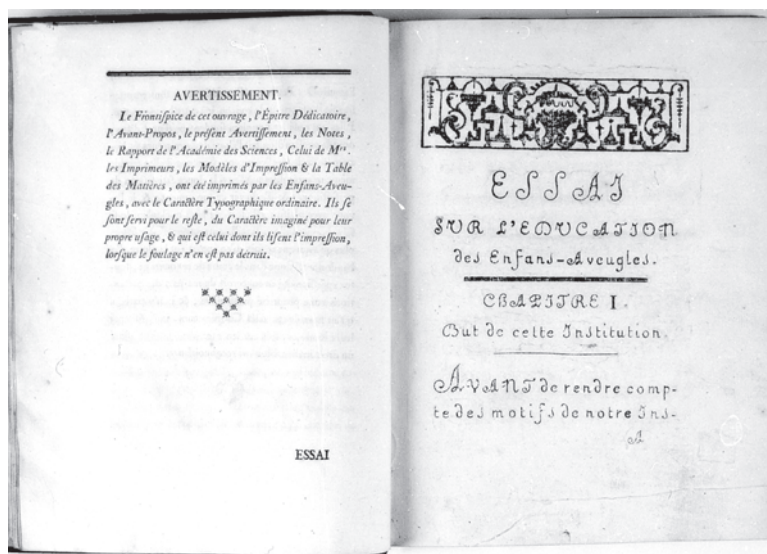 AVERTISSEMENT.
Le Frontiſpice de cet ouvrage, l'Épitre Dédicatoire,
l'Avant-Propos, le préſent Avertiſſement, les Notes,
le Rapport de l'Académie des Sciences, Celui de Mrs.
les Imprimeurs, les Modèles d'Impreſſion & la Table
des Matières, ont été imprimés par les Enfans-Aveu-
gles, avec le Caractère Typographique ordinaire. Ils ſe
ſont ſervi pour le reſte, du Caractère imaginé pour leur
propre uſage, & qui eſt celui dont ils liſent l'impreſſion,
lorſque le foulage n'en eſt pas detruit.
ESSAI
ESSAI
SUR L'EDUCATION
des Enfans-Aveugles.
CHAPITRE I.
But de cette Institution.
AVANT de rendre comp-
te des motifs de notre Ins-
A